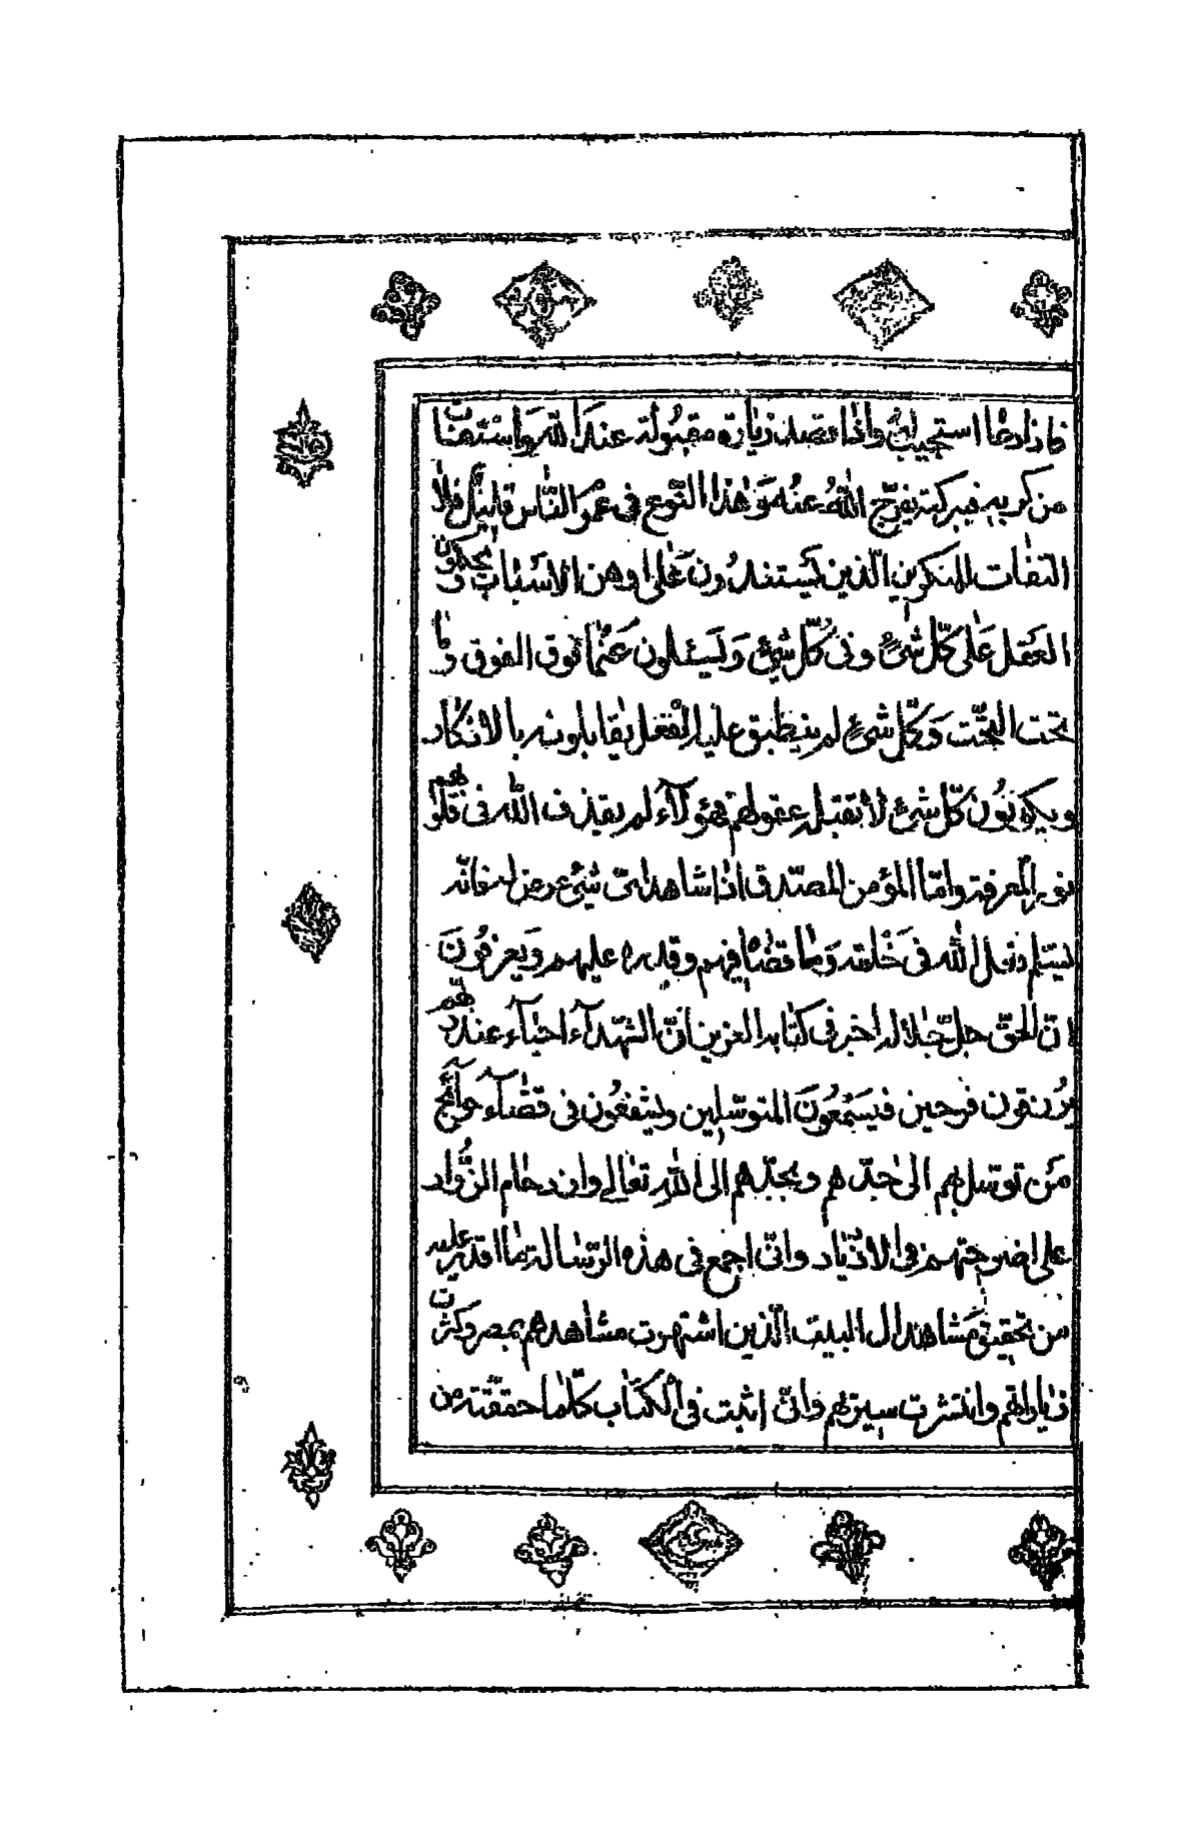 فاذا دعا استجيب له واذا قصد زيارة مقبولة عند الله واستغاث
من كربه فببركته يفرّج الله عنه وهذا النّوع في عموالنّاس قليل فلا
التفات للمنكرين الّذين يستندون على اوهن الاسباب يحكمون
العقل على كلّ شئ وفى كلّ شئ وَيسئلون عمّا فوق الفوق وما
تحت التّحت وكلّ شئ لم ينطبق عليه العقل يقابلونه بالانكار
ويكذبون كلّ شئ لا تقبله عقولهم هؤلاء لم يقذف الله فى قلوبهم
نور المعرفة وامّا المؤمن المصدّق اذا شاهد اىّ شئ عرض له فانّه
يسلم فعل الله فى خلقه وما قضاه فيهم وقدره عليهم ويعرفون
انّ الحقّ جلّ جلاله اخبر فى كتابه العزيز انّ الشهدآء احيآء عند ربّهم
يرزقون فرحين فيسمعون المتوسّلين ويشفعون فى قضآء حوآئج
من توسّل بهم الى جدّهم وبجدّهم الى الله تعالى وازدحام الزّوّاد
على اضرحتهم فى الازدياد وانّى اجمع فى هذه الرّسالة ما اقدر عليه
من تحقيق مشاهد ال البيت الّذين اشتهرت مشاهدهم بمصر وكثرت
زياراتهم وانتشرت سيرتهم وانّى اثبت فى الكتاب كلّما حققته من